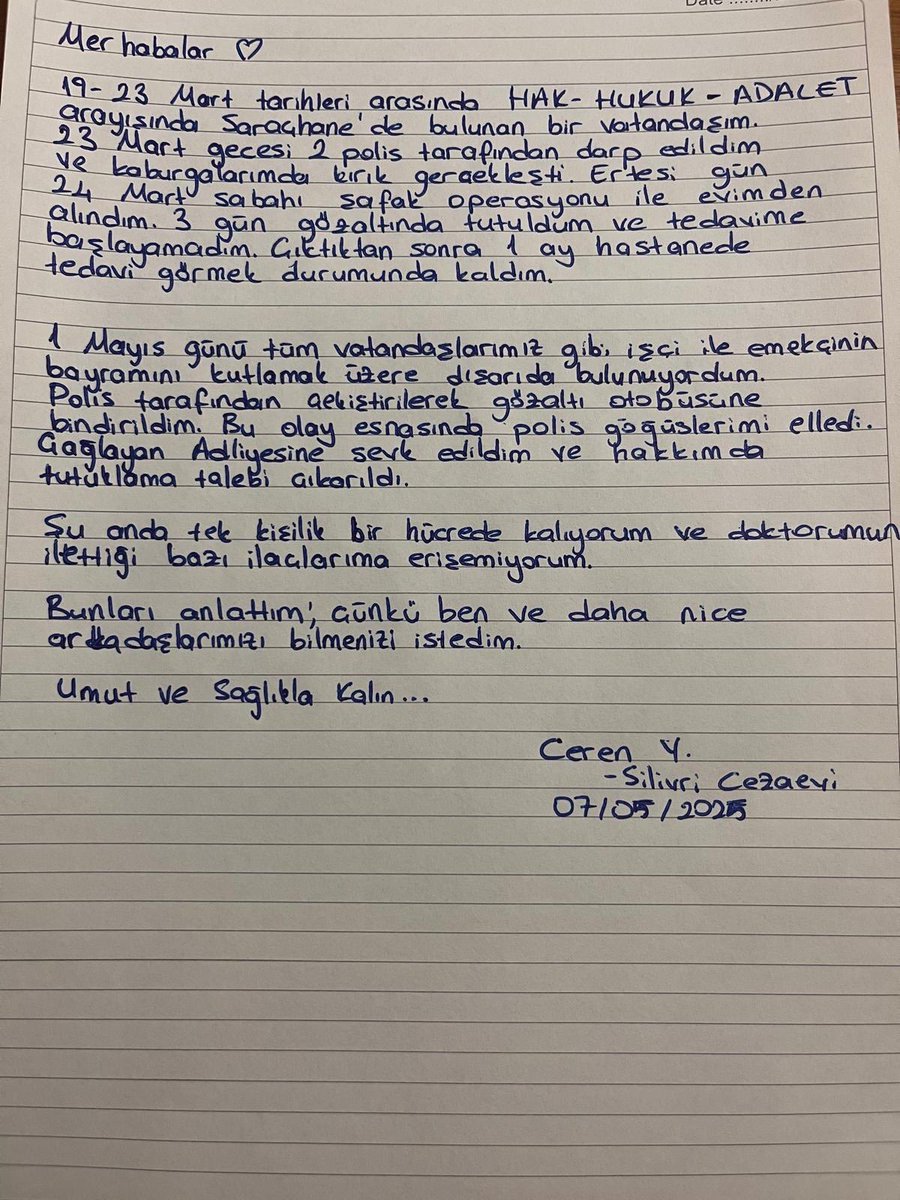 Date ........
Merhabalar ♡
19-23 Mart tarihleri arasında HAK-HUKUK-ADALET
arayışında Saraçhane'de bulunan bir vatandaşım.
23 Mart gecesi 2 polis tarafından darp edildim
ve kaburgalarımda kırık gerçekleşti. Ertesi gün
24 Mart sabahı şafak operasyonu ile evimden
alındım. 3 gün gözaltında tutuldum ve tedavime
başlayamadım. Çıktıktan sonra 1 ay hastanede
tedavi görmek durumunda kaldım.
1 Mayıs günü tüm vatandaşlarımız gibi, işçi ile emekçinin
bayramını kutlamak üzere dışarıda bulunuyordum.
Polis tarafından çekiştirilerek gözaltı otobüsüne
bindirildim. Bu olay esnasında polis göğüslerimi elledi.
Çağlayan Adliyesine sevk edildim ve hakkımda
tutuklama talebi çıkarıldı.
Şu anda tek kişilik bir hücrede kalıyorum ve doktorumun
ilettiği bazı ilaçlarıma erişemiyorum.
Bunları anlattım; çünkü ben ve daha nice
arkadaşlarımızı bilmenizi istedim.
Umut ve Sağlıkla Kalın...
Ceren Y.
-Silivri Cezaevi
07/05/2025